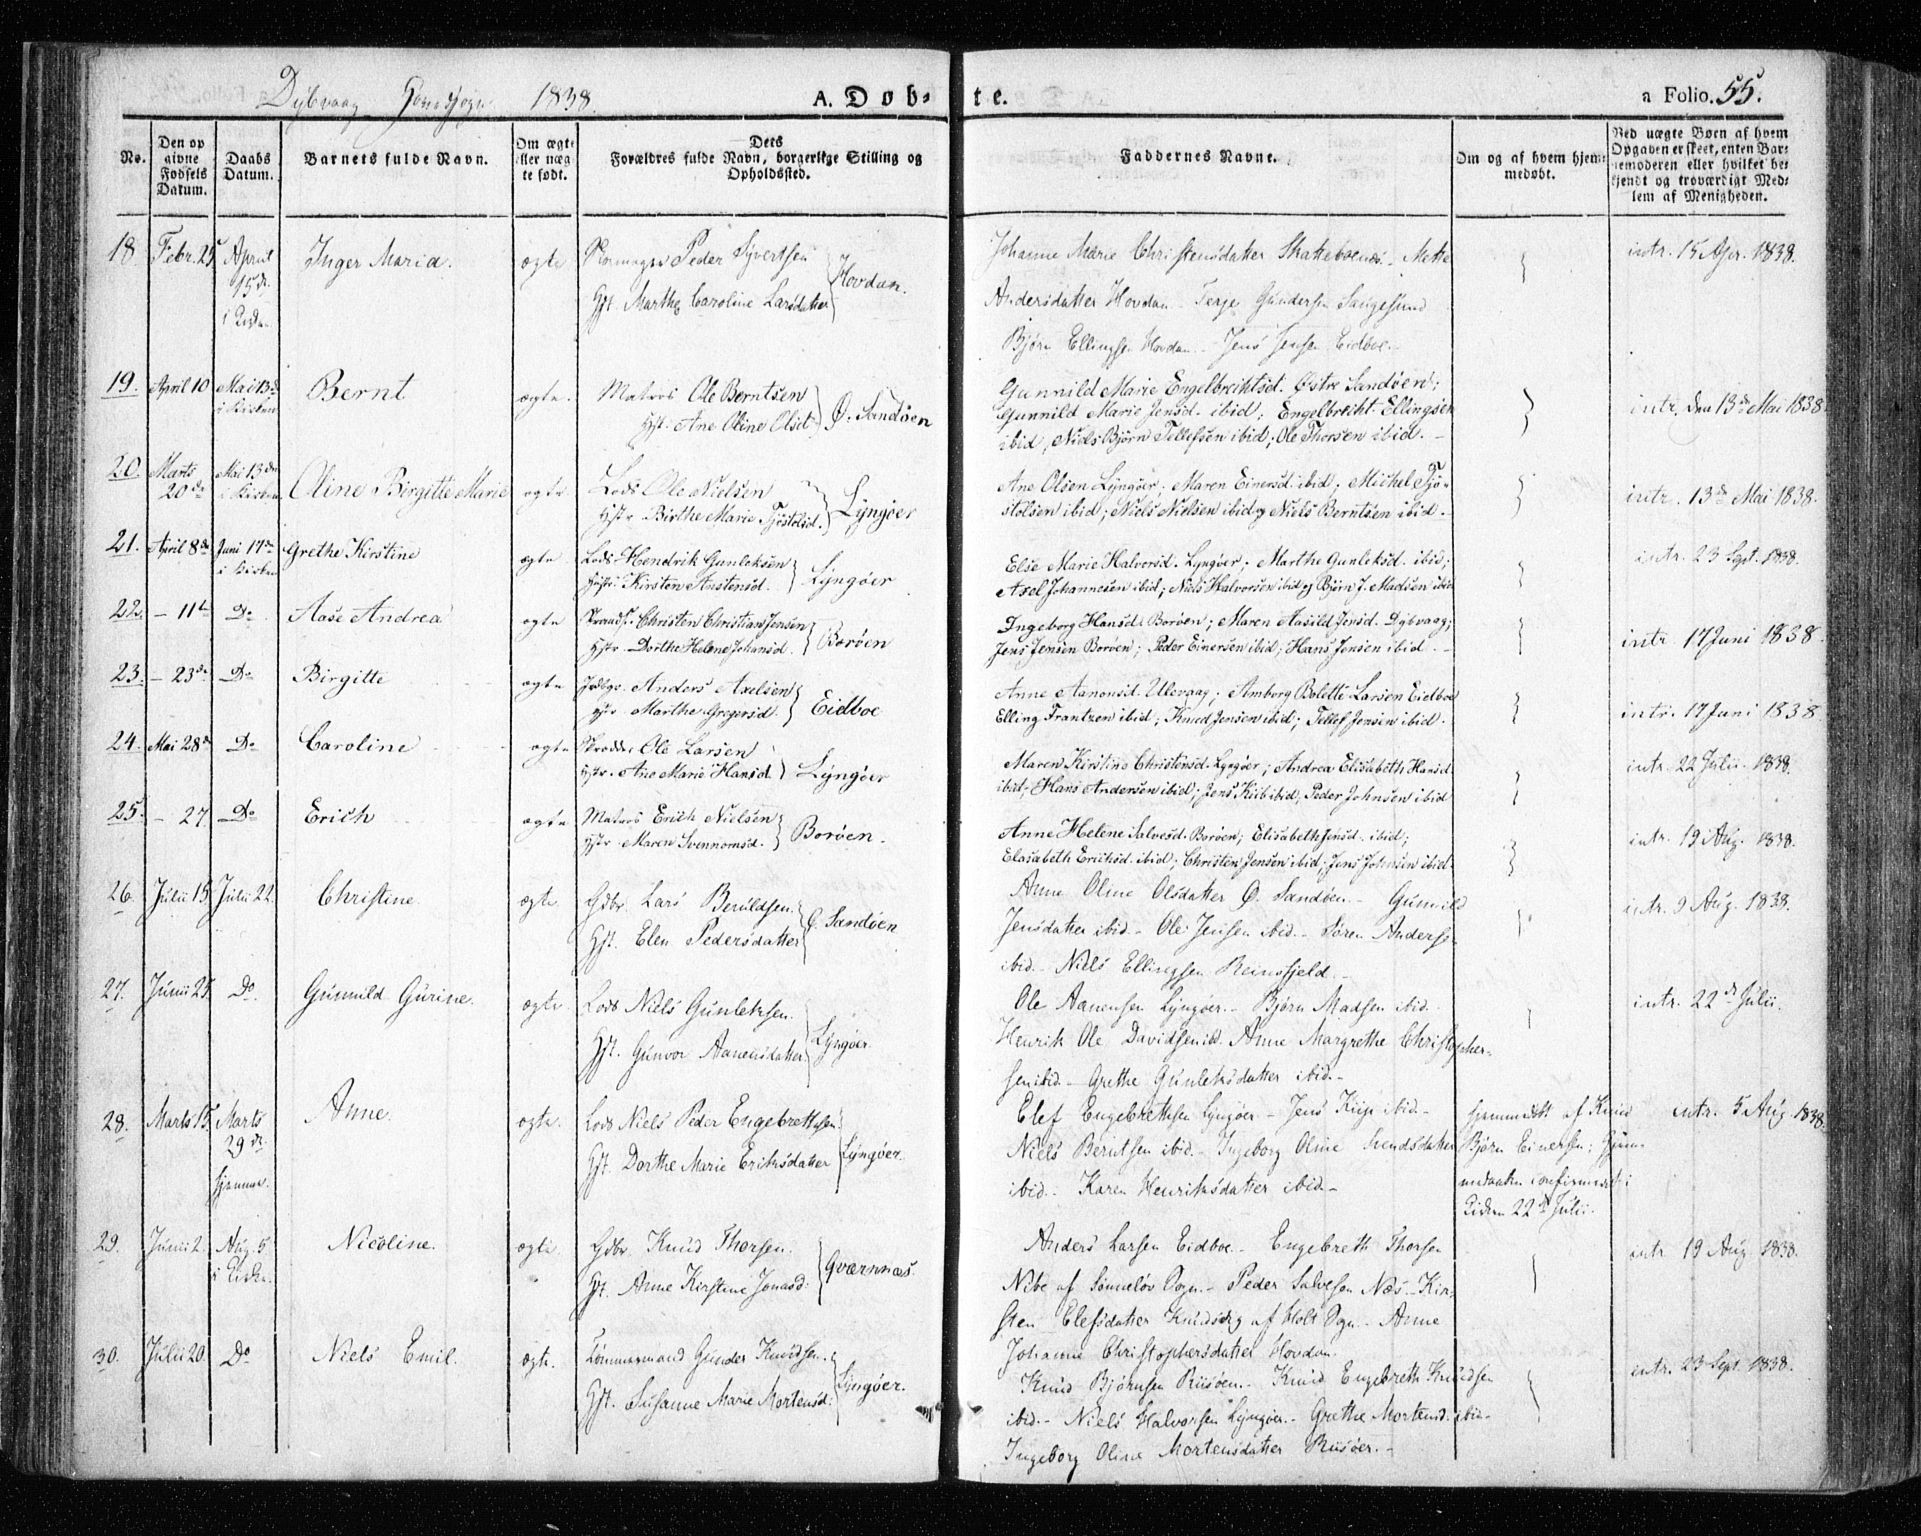 Dybvaag Hovedsogn 1838. A. Døb-te. a Folio. 55.
No.
Den op
givne
Fødsels
Datum.
Daabs
Datum.
Barnets fulde Navn.
Om ægte
eller uæg
te født.
Dets
Forældres fulde Navn, borgerlige Stilling og
Opholdssted.
Faddernes Navne.
Om og af hvem hjem-
medøbt.
Ved uægte Børn af hvem
Opgaven er skeet, enten Bar-
nemoderen eller hvilket be-
kjendt og troværdigt Med-
lem af Menigheden.
18 Febr. 25 April Inger Maria. ægte Peder Syvertsen Hovdan. Johanne Marie Christensdatter Skatteboenæs - Mette intr. 15 Apr. 1838.
15de Hst. Marthe Caroline Larsdatter Andersdatter Hovdan - Terje Gundersen Laugesund
i Kirken Bjørn Ellingsen Hovdan - Jens Jensen Eidboe -
19. April 10 Mai 13de Bernt ægte. Matros Ole Berntsen Ø. Sandøen Gunnild Marie Engelbrechtsd. Østre Sandøen; intr. den 13de Mai 1838.
i Kirken Hst. Ane Oline Olsd. Gunnild Marie Jensd. ibid; Engelbrecht Ellingsen
ibid, Niels Bjørn Tellefsen ibid; Ole Thorsen ibid. -
20. Marts Mai 13de Oline Birgitte Marie ægte Lods Ole Nielsen Lyngøer Ane Olsen Lyngøer; Maren Einersd. ibid; Michel Tjø- intr. 13de Mai 1838.
20de i Kirken Hstr. Birthe Marie Tjøstolsd. stolsen ibid; Niels Nielsen ibid og Niels Berntsen ibid. -
21. April 8de Juni 17de Grethe Kirstine ægte Lods Hendrik Gunleksen Lyngøer Else Marie Halvorsd. Lyngøer; Marthe Gunleksd. ibid; intr. 23 Sept. 1838.
i Kirken Hustr. Kirsten Anstensd. Axel Johannesen ibid; Niels Halvorsen ibid og Bjørn J. Madsen ibid
22. - 11te Do Aase Andrea ægte Strands. Christen Christian Jensen Borøen Ingeborg Hansd. Borøen; Maren Aasild Jensd. Dybvaag; intr 17 Juni 1838.
Hstr. Dorthe Helene Johansd. Jens Jensen Borøen; Peder Einersen ibid; Hans Jensen ibid. -
23. - 23de Do Birgitte ægte Anders Axelsen Eidboe Anne Aanonsd. Ulevaag; Amborg Bolette Larsen Eidboe intr. 17 Juni 1838
Hstr Marthe Gregersd. Elling Frantzen ibid; Knud Jensen ibid; Tellef Jensen ibid.
24. Mai 28de Do Caroline ægte Skrædder Ole Larsen Lyngøer Maren Kirstine Christensd. Lyngøer; Andrea Elisabeth Hansd. intr. 22 Julii 1838.
Hstr. Ane Marie Hansd. ibid; Hans Andersen ibid; Jens Kiib ibid; Peder Johnsen ibid
25. - 27 Do Erich ægte Matros Erich Nielsen Borøen. Anne Helene Salvesd. Borøen; Elisabeth Jensd. ibid; intr. 19 Aug. 1838.
Hstr. Maren Svennomsd. Elasabeth Erichsd. ibid; Christen Jensen ibid; Jens Johnsen ibid.
26. Julii 15. Julii 22. Christine. ægte. Gdbr. Lars Beruldsen. Ø. Sandøen Anne Oline Olsdatter Ø. Sandøen - Gunnild intr. 9 Aug. 1838.
Hst. Elen Pedersdatter Jensdatter ibid - Ole Jensen ibid - Søren Anders.
ibid - Niels Ellingsen Reinsfjeld. -
27. Junii 25. Do. Gunnild Gurine. ægte. Lods Niels Gunleksen. Lyngøer Ole Aanensen Lyngøer - Bjørn Madsen ibid. intr. 22de Julii.
Hst. Gunvor Aanensdatter Henrik Ole Davidsen ibid. Anne Margrethe Christopher-
sen ibid - Grethe Gunleksdatter ibid -
28. Marts 15. Marts Anne. ægte. Lods Niels Peder Engebrethsen Lyngøer. Elef Engebrethsen Lyngøer - Jens Kiip ibid - hjemmedøbt af Knud intr. 5 Aug. 1838.
29de Hst. Dorthe Marie Eriksdatter Niels Berntsen ibid - Ingeborg Oline Svendsdatter Bjørn Einersen; Hjem-
hjemme. ibid. - Karen Henriksdatter ibid - medaaben confirmeret i
Kirken 22de Julii.
29. Junii 2. Aug. 5 Nicoline. ægte. Gdbr. Knud Thorsen. Qværnnæs. Anders Larsen Eidboe - Engebreth Thorsen intr 19 Aug 1838.
i Kirken Hst. Anne Kirstine Jonasd: Nibe af Sønneløv Sogn - Peder Salvesen Næs - Kir-
sten Elefsdatter af Holt Sogn - Anne
Johanne Christophersdatter Hovdan.
30. Julii 20. Do Niels Emil. ægte. Tømmermand Gunder Knudsen. Lyngøer. Knud Bjørnsen Riisøen - Knud Engebreth Knudsen intr. 23 Sept. 1838.
Hst. Susanne Marie Mortensd: ibid - Niels Halvorsen Lyngøer - Grethe Mortensd. ibid -
Ingeborg Oline Mortensdatter Riisøer. -